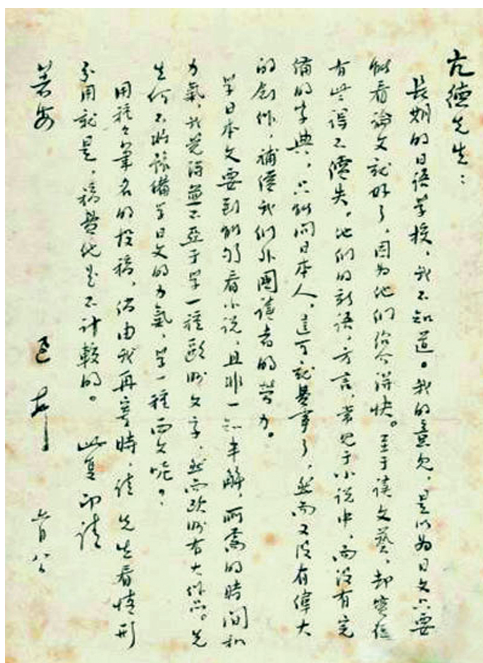 亢德先生：
长期的日语学校，我不知道。我的意见，是以为日文只要
能看论文就好了，因为他们绍介得快。至于读文艺，却实在
有些得不偿失。他们的新语，方言，常见于小说中，而没有完
备的字典，只能问日本人，这可就费事了，然而又没有伟大
的创作，补偿我们外国读者的劳力。
学日本文要到能够看小说，且非一知半解，所需的时间和
力气，我觉得并不亚于学一种欧洲文字，然而欧洲有大作品。先
生何不将豫备学日文的力气，学一种西文呢？
用种々笔名的投稿，仍由我再寄时，请 先生看情形
分用就是，稿费他是不计较的。 此复即请
著安
迅 上 六月八日